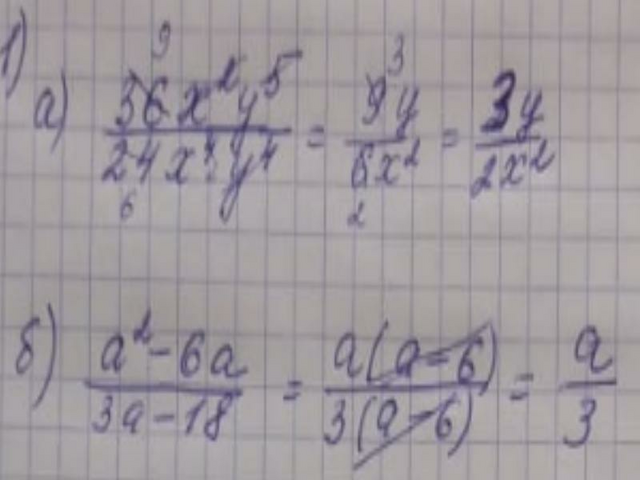 1)
а) 36x²y⁵ / 24x⁴y⁴ = 9y / 6x² = 3y / 2x²
б) a² - 6a / 3a - 18 = a(a - 6) / 3(a - 6) = a / 3